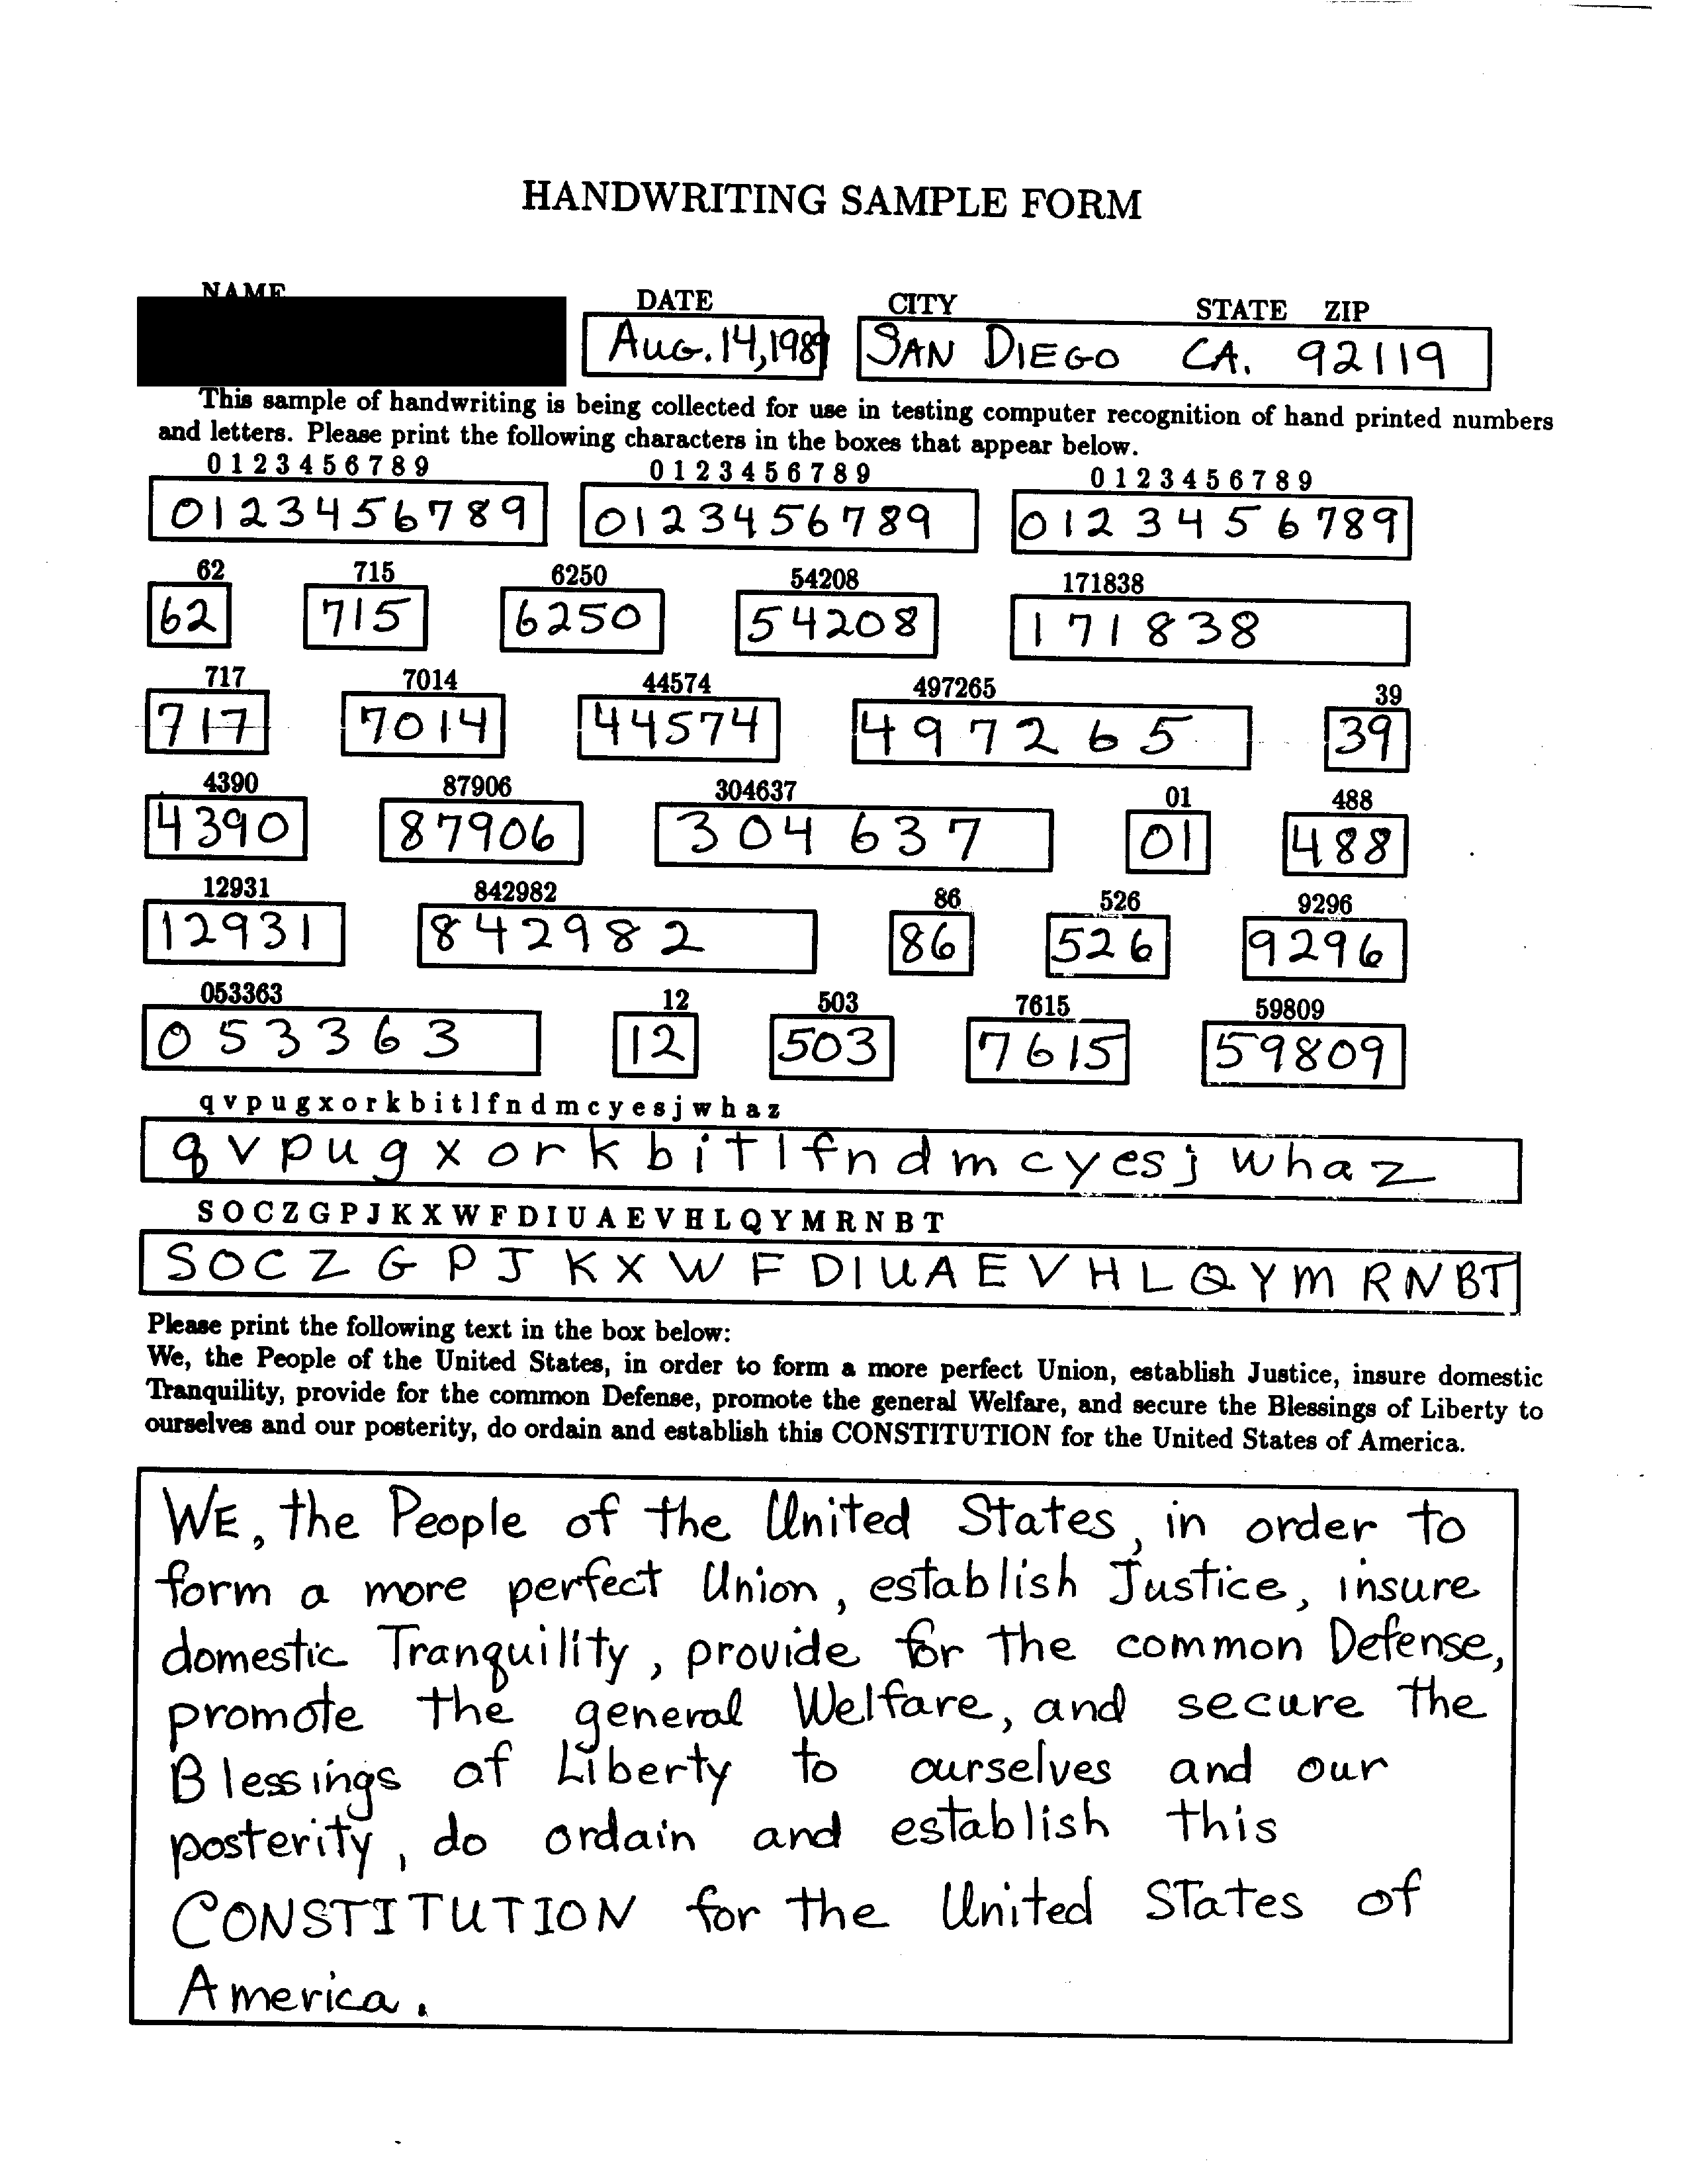 HANDWRITING SAMPLE FORM
NAME DATE CITY STATE ZIP
Aug. 14, 1989 SAN DIEGO CA. 92119
This sample of handwriting is being collected for use in testing computer recognition of hand printed numbers
and letters. Please print the following characters in the boxes that appear below.
0 1 2 3 4 5 6 7 8 9 0 1 2 3 4 5 6 7 8 9 0 1 2 3 4 5 6 7 8 9
0123456789 0123456789 0123456789
62 715 6250 54208 171838
62 715 6250 54208 171838
717 7014 44574 497265 39
717 7014 44574 497265 39
4390 87906 304637 01 488
4390 87906 304637 01 488
12931 842982 86 526 9296
12931 842982 86 526 9296
053363 12 503 7615 59809
053363 12 503 7615 59809
q v p u g x o r k b i t l f n d m c y e s j w h a z
q v p u g x o r k b i t l f n d m c y e s j w h a z
S O C Z G P J K X W F D I U A E V H L Q Y M R N B T
S O C Z G P J K X W F D I U A E V H L Q Y M R N B T
Please print the following text in the box below:
We, the People of the United States, in order to form a more perfect Union, establish Justice, insure domestic
Tranquility, provide for the common Defense, promote the general Welfare, and secure the Blessings of Liberty to
ourselves and our posterity, do ordain and establish this CONSTITUTION for the United States of America.
WE, the People of the United States, in order to
form a more perfect Union, establish Justice, insure
domestic Tranquility, provide for the common Defense,
promote the general Welfare, and secure the
Blessings of Liberty to ourselves and our
posterity, do ordain and establish this
CONSTITUTION for the United States of
America.